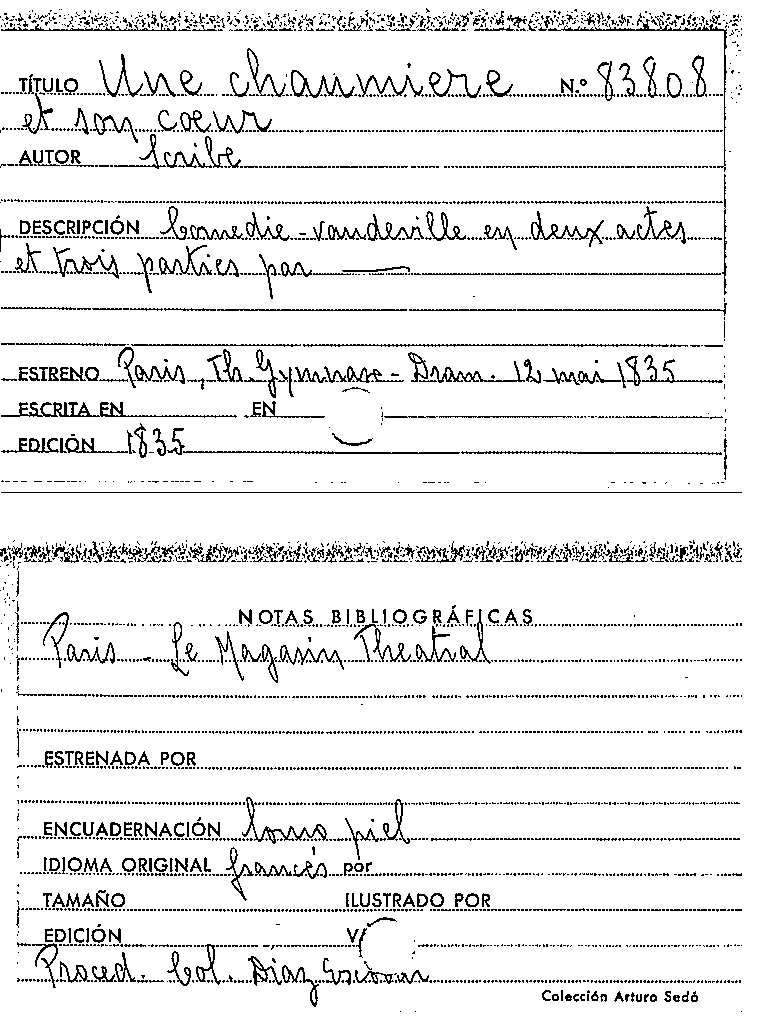 TÍTULO Une chaumiere N.º 83808
et son coeur
AUTOR Scribe
DESCRIPCIÓN Comedie-vaudeville en deux actes
et trois parties par ——
ESTRENO Paris, Th. Gymnase - Dram. 12 mai 1835
ESCRITA EN EN
EDICIÓN 1835
NOTAS BIBLIOGRÁFICAS
Paris - Le Magasin Theatral
ESTRENADA POR
ENCUADERNACIÓN lomo piel
IDIOMA ORIGINAL francés por
TAMAÑO ILUSTRADO POR
EDICIÓN V/
Proced. Col. Díaz Escovar
Colección Arturo Sedó